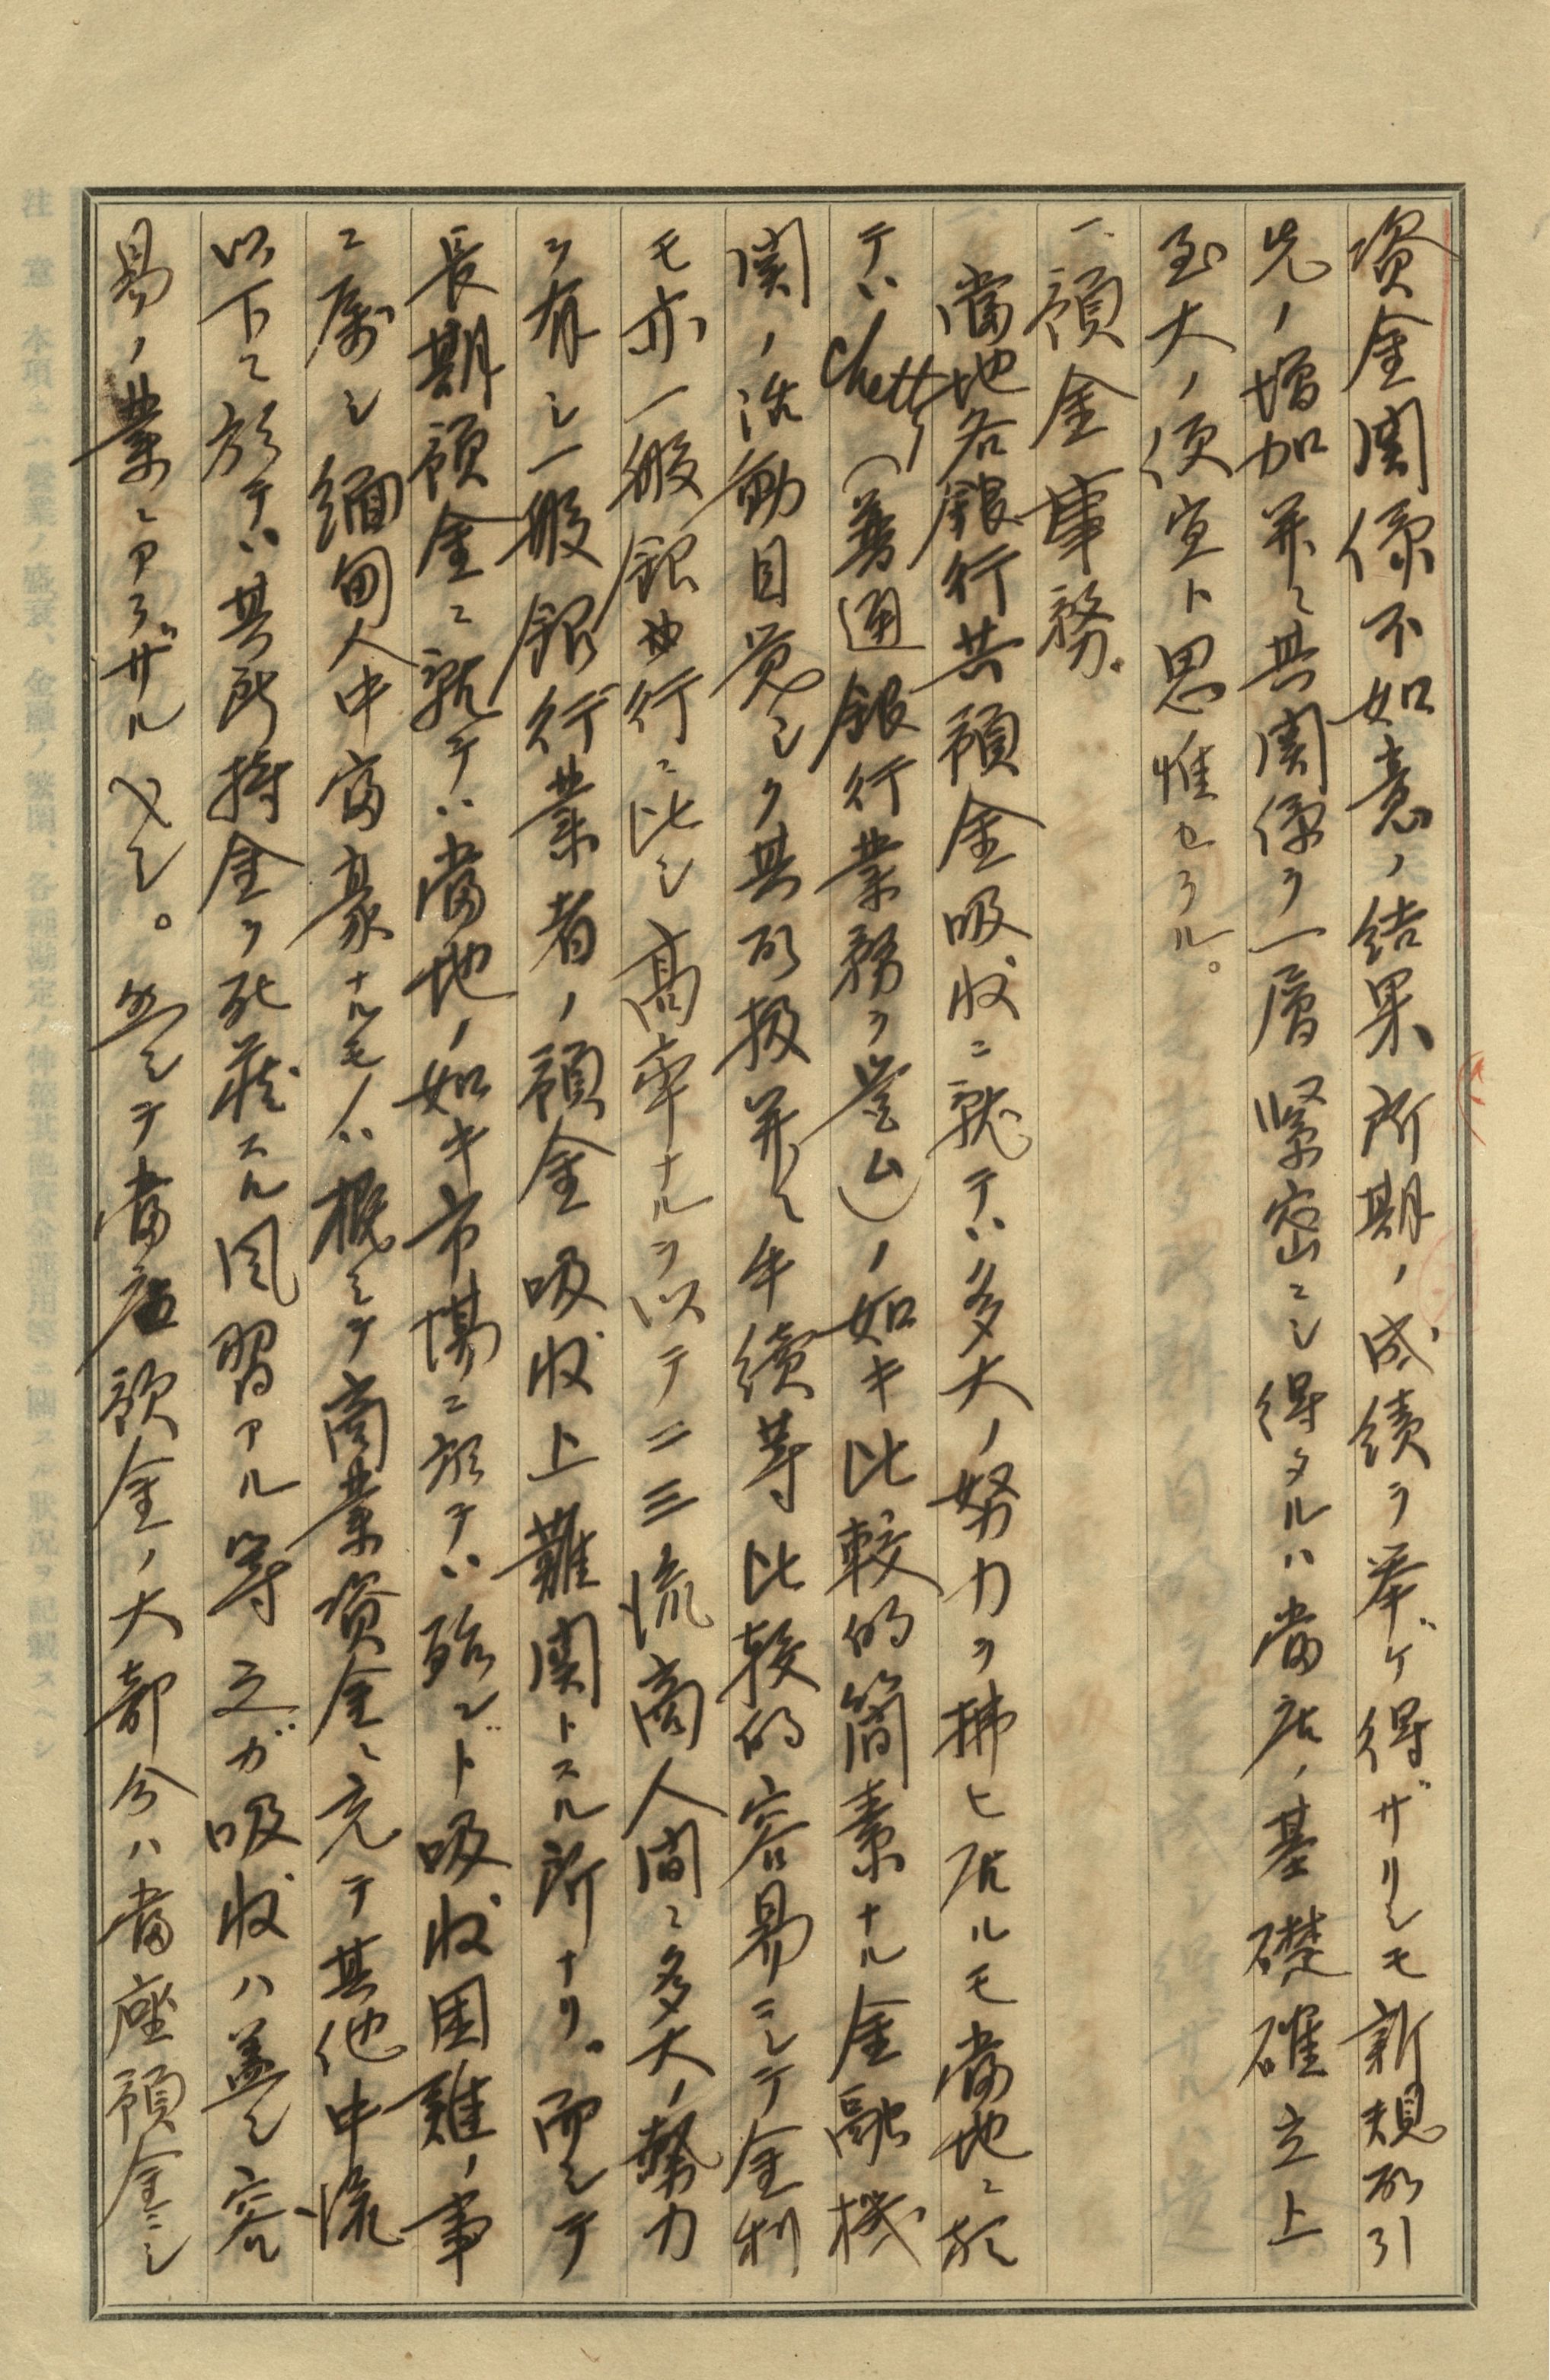 資金関係不如意ノ結果所期ノ成績ヲ挙ゲ得ザリシモ新規取引
先ノ増加并ニ其関係ヲ一層緊密ニシ得タルハ當店ノ基礎確立上
至大ノ便宜ト思惟セラル。
一、預金事務。
當地各銀行共預金吸収ニ就テハ多大ノ努力ヲ拂ヒ居ルモ當地ニ於
テハChetty（普通銀行業務ヲ営ム）ノ如キ比較的簡素ナル金融機
関ノ活動目覚シク其取扱并ニ手續等比較的容易ニシテ金利
モ亦一般銀行ニ比シ高率ナルヲ以テ二三流商人間ニ多大ノ勢力
ヲ有シ一般銀行業者ノ預金吸収上難関トスル所ナリ。而シテ
長期預金ニ就テハ當地ノ如キ市場ニ於テハ殆ンド吸収困難ノ事
ニ属シ緬甸人中富豪ナルモノハ概シテ商業資金ニ充テ其他中流
以下ニ於テハ其所持金ヲ死蔵スル風習アル等之ガ吸収ハ蓋シ容
易ノ業ニアラザルベシ。然シテ當店預金ノ大部分ハ當座預金ニシ